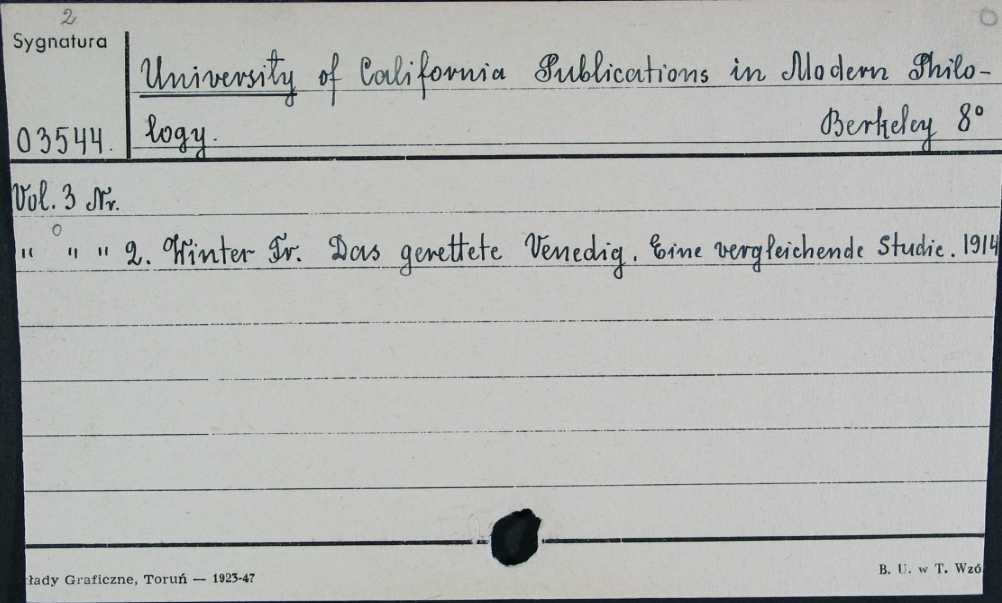 2
Sygnatura
University of California Publications in Modern Philo-
03544. logy. Berkeley 8°
Vol. 3 Nr.
" " " 2. Winter Fr. Das gerettete Venedig. Eine vergleichende Studie. 1914
łady Graficzne, Toruń — 1923-47
B. U. w T. Wzó